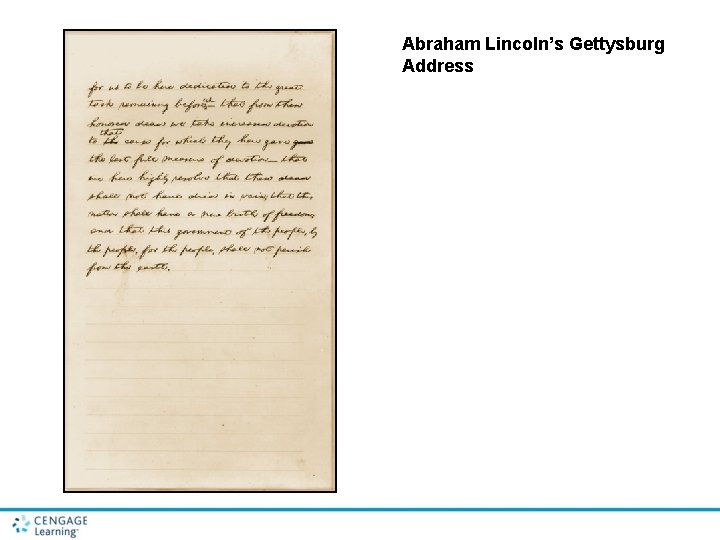 Abraham Lincoln’s Gettysburg
Address
for us to be here dedicated to the great
task remaining before us— that from these
honored dead we take increased devotion
to the that cause for which they here gave gave
the last full measure of devotion— that
we here highly resolve that these dead
shall not have died in vain; that this
nation shall have a new birth of freedom;
and that this government of the people, by
the people, for the people, shall not perish
from the earth.
CENGAGE
Learning™